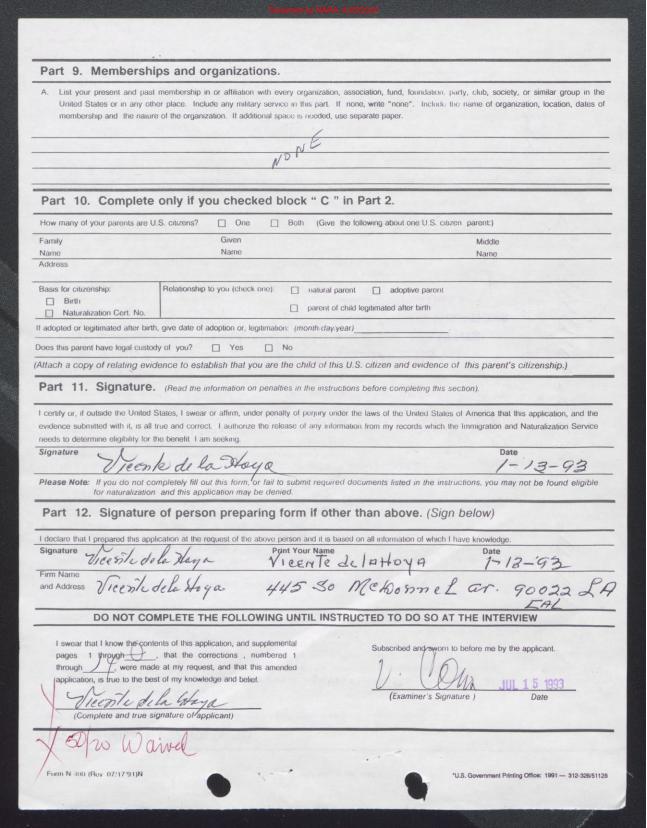 Part 9. Memberships and organizations.
A. List your present and past membership in or affiliation with every organization, association, fund, foundation, party, club, society, or similar group in the
United States or in any other place. Include any military service in this part. If none, write "none". Include the name of organization, location, dates of
membership and the nature of the organization. If additional space is needed, use separate paper.
NONE
Part 10. Complete only if you checked block " C " in Part 2.
How many of your parents are U.S. citizens? ☐ One ☐ Both (Give the following about one U.S. citizen parent:)
Family Given Middle
Name Name Name
Address
Basis for citizenship: Relationship to you (check one): ☐ natural parent ☐ adoptive parent
☐ Birth
☐ Naturalization Cert. No. ☐ parent of child legitimated after birth
If adopted or legitimated after birth, give date of adoption or, legitimation: (month/day/year)
Does this parent have legal custody of you? ☐ Yes ☐ No
(Attach a copy of relating evidence to establish that you are the child of this U.S. citizen and evidence of this parent's citizenship.)
Part 11. Signature. (Read the information on penalties in the instructions before completing this section).
I certify or, if outside the United States, I swear or affirm, under penalty of perjury under the laws of the United States of America that this application, and the
evidence submitted with it, is all true and correct. I authorize the release of any information from my records which the Immigration and Naturalization Service
needs to determine eligibility for the benefit I am seeking.
Signature Date
Vicente de la Hoya 1-13-93
Please Note: If you do not completely fill out this form, or fail to submit required documents listed in the instructions, you may not be found eligible
for naturalization and this application may be denied.
Part 12. Signature of person preparing form if other than above. (Sign below)
I declare that I prepared this application at the request of the above person and it is based on all information of which I have knowledge.
Signature Print Your Name Date
Vicente de la Hoya Vicente de la Hoya 1-13-93
Firm Name
and Address Vicente de la Hoya 445 So McDonnel 90022 LA
CAL
DO NOT COMPLETE THE FOLLOWING UNTIL INSTRUCTED TO DO SO AT THE INTERVIEW
I swear that I know the contents of this application, and supplemental
pages 1 through , that the corrections , numbered 1
through , were made at my request, and that this amended
application, is true to the best of my knowledge and belief.
Subscribed and sworn to before me by the applicant.
JUL 15 1993
(Examiner's Signature ) Date
Vicente de la Hoya
(Complete and true signature of applicant)
50/20 Waived
Form N-400 (Rev. 07/17/91)N
*U.S. Government Printing Office: 1991 — 312-328/51128